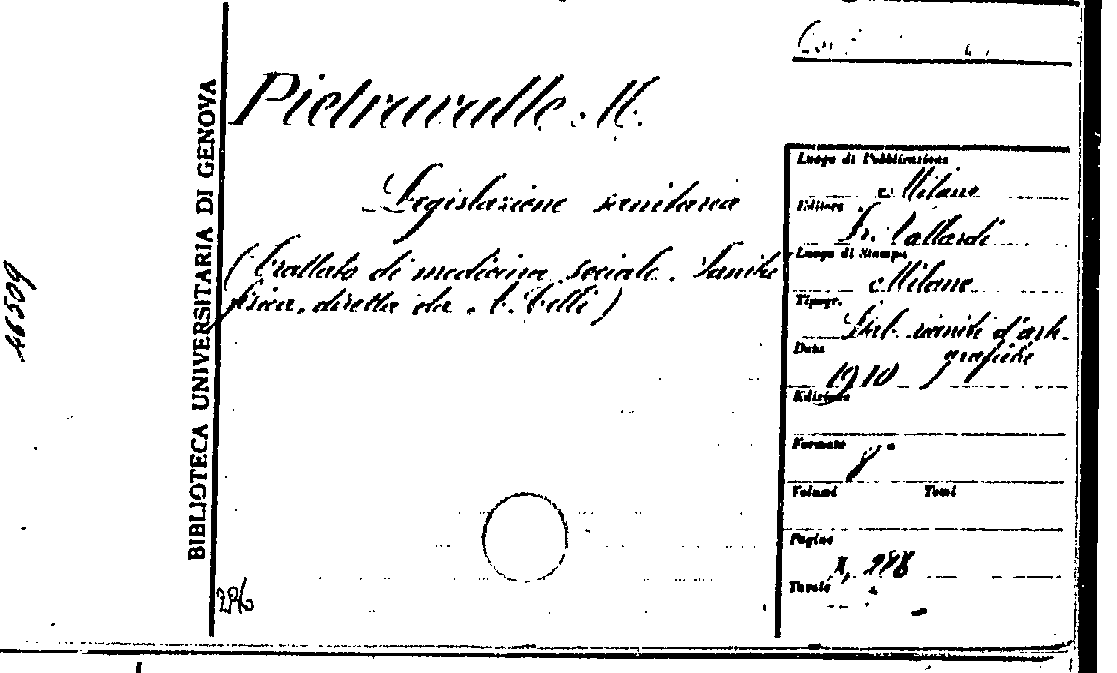 BIBLIOTECA UNIVERSITARIA DI GENOVA
46509
Pietravalle M.
Legislazione sanitaria
(Trattato di medicina sociale. Sanità
fisica, diretta da A. Celli)
286
Luogo di Pubblicazione
Milano
Editore
Fr. Vallardi
Luogo di Stampa
Milano
Tipogr.
Stab. riuniti d'arti
grafiche
Data
1910
Edizione
Formato
8°
Volumi Tomi
Pagine
X, 298
Tavole